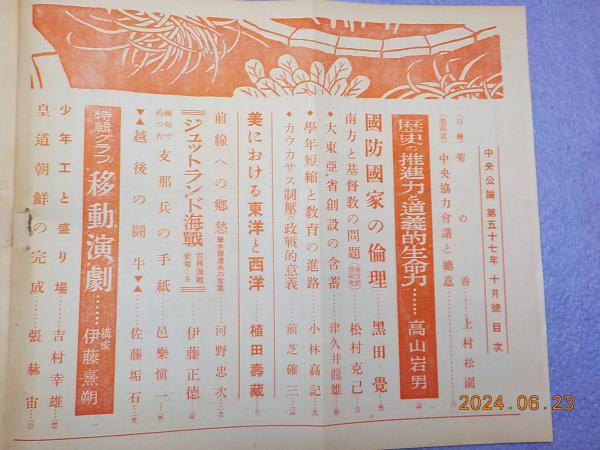 中央公論 第五十七年 十月號 目次
(口繪) 菊の香…… 上村松園
(卷頭言) 中央協力會議と總意……
歷史の推進力と道義的生命力…… 高山岩男
國防國家の倫理…… 黑田覺
南方と基督敎の問題 松村克己
◆大東亞省創設の含蓄…… 津久井龍雄
◆學年短縮と敎育の進路…… 小林高記
◆カウカサス制壓の政戰的意義…… 前芝確三
美における東洋と西洋…… 植田壽藏
前線への鄕愁 河野忠次
緬甸で拾つた 支那兵の手紙…… 邑樂愼一
ジュットランド海戰 世界海戰史考・9 伊藤正德
▼▲越後の鬪牛▼▲…… 佐藤垢石
特輯グラフ 移動演劇…… 構成 伊藤熹朔
少年工と盛り場…… 吉村幸雄
皇道朝鮮の完成…… 張赫宙
2024.06.23